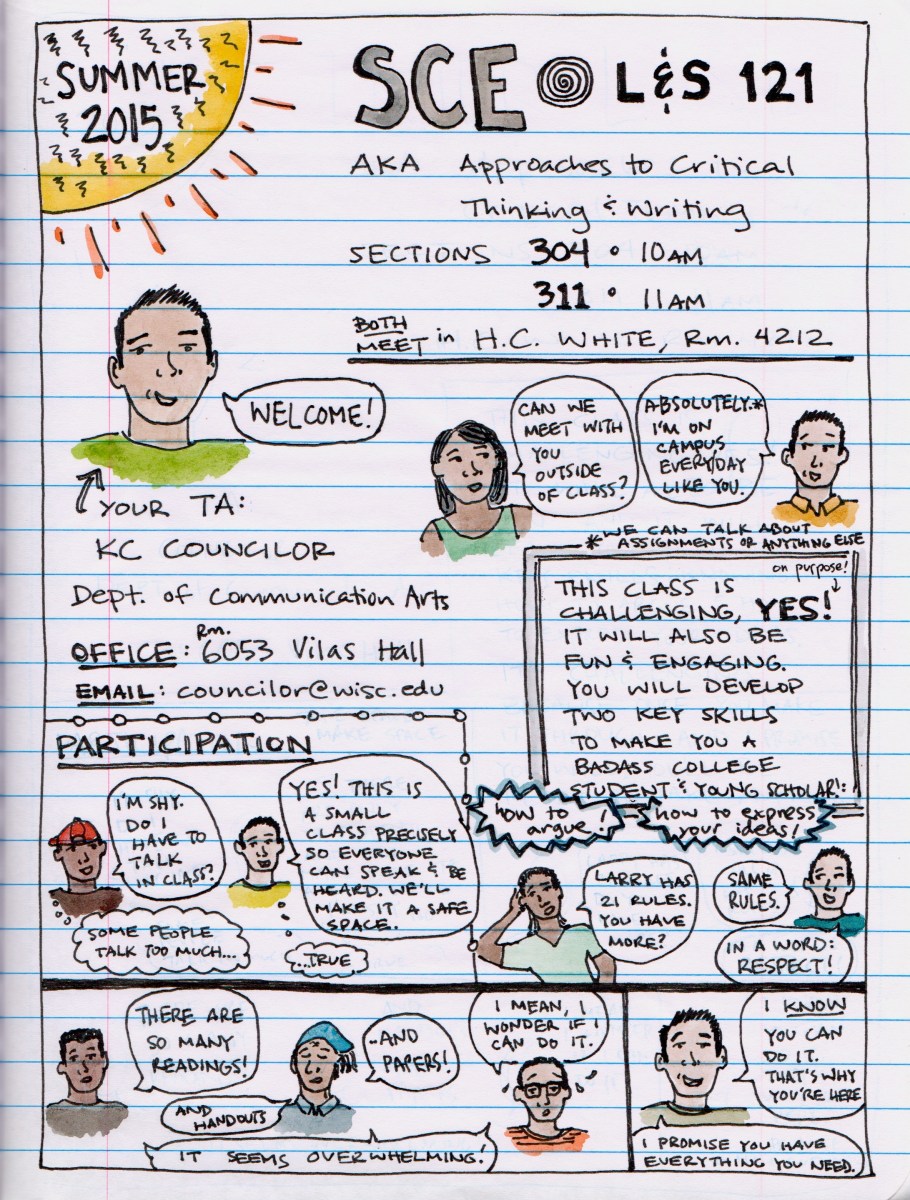 SUMMER
2015
SCE L&S 121
AKA Approaches to Critical
Thinking & Writing
SECTIONS 304 • 10AM
311 • 11AM
BOTH
MEET in H.C. WHITE, Rm. 4212
WELCOME!
YOUR TA:
KC COUNCILOR
Dept. of Communication Arts
OFFICE: Rm. 6053 Vilas Hall
EMAIL: councilor@wisc.edu
CAN WE
MEET WITH
YOU
OUTSIDE
OF CLASS?
ABSOLUTELY.*
I'M ON
CAMPUS
EVERYDAY
LIKE YOU.
*WE CAN TALK ABOUT
ASSIGNMENTS OR ANYTHING ELSE
on purpose!
THIS CLASS IS
CHALLENGING, YES!
IT WILL ALSO BE
FUN & ENGAGING.
YOU WILL DEVELOP
TWO KEY SKILLS
TO MAKE YOU A
BADASS COLLEGE
STUDENT & YOUNG SCHOLAR!:
how to
argue!
how to express
your ideas!
PARTICIPATION
I'M SHY.
DO I
HAVE TO
TALK
IN CLASS?
SOME PEOPLE
TALK TOO MUCH...
YES! THIS IS
A SMALL
CLASS PRECISELY
SO EVERYONE
CAN SPEAK & BE
HEARD. WE'LL
MAKE IT A SAFE
SPACE.
...TRUE
LARRY HAS
21 RULES.
YOU HAVE
MORE?
SAME
RULES.
IN A WORD:
RESPECT!
THERE ARE
SO MANY
READINGS!
AND
HANDOUTS
..AND
PAPERS!
I MEAN, I
WONDER IF I
CAN DO IT.
IT SEEMS OVERWHELMING!
I KNOW
YOU CAN
DO IT.
THAT'S WHY
YOU'RE HERE
I PROMISE YOU HAVE
EVERYTHING YOU NEED.